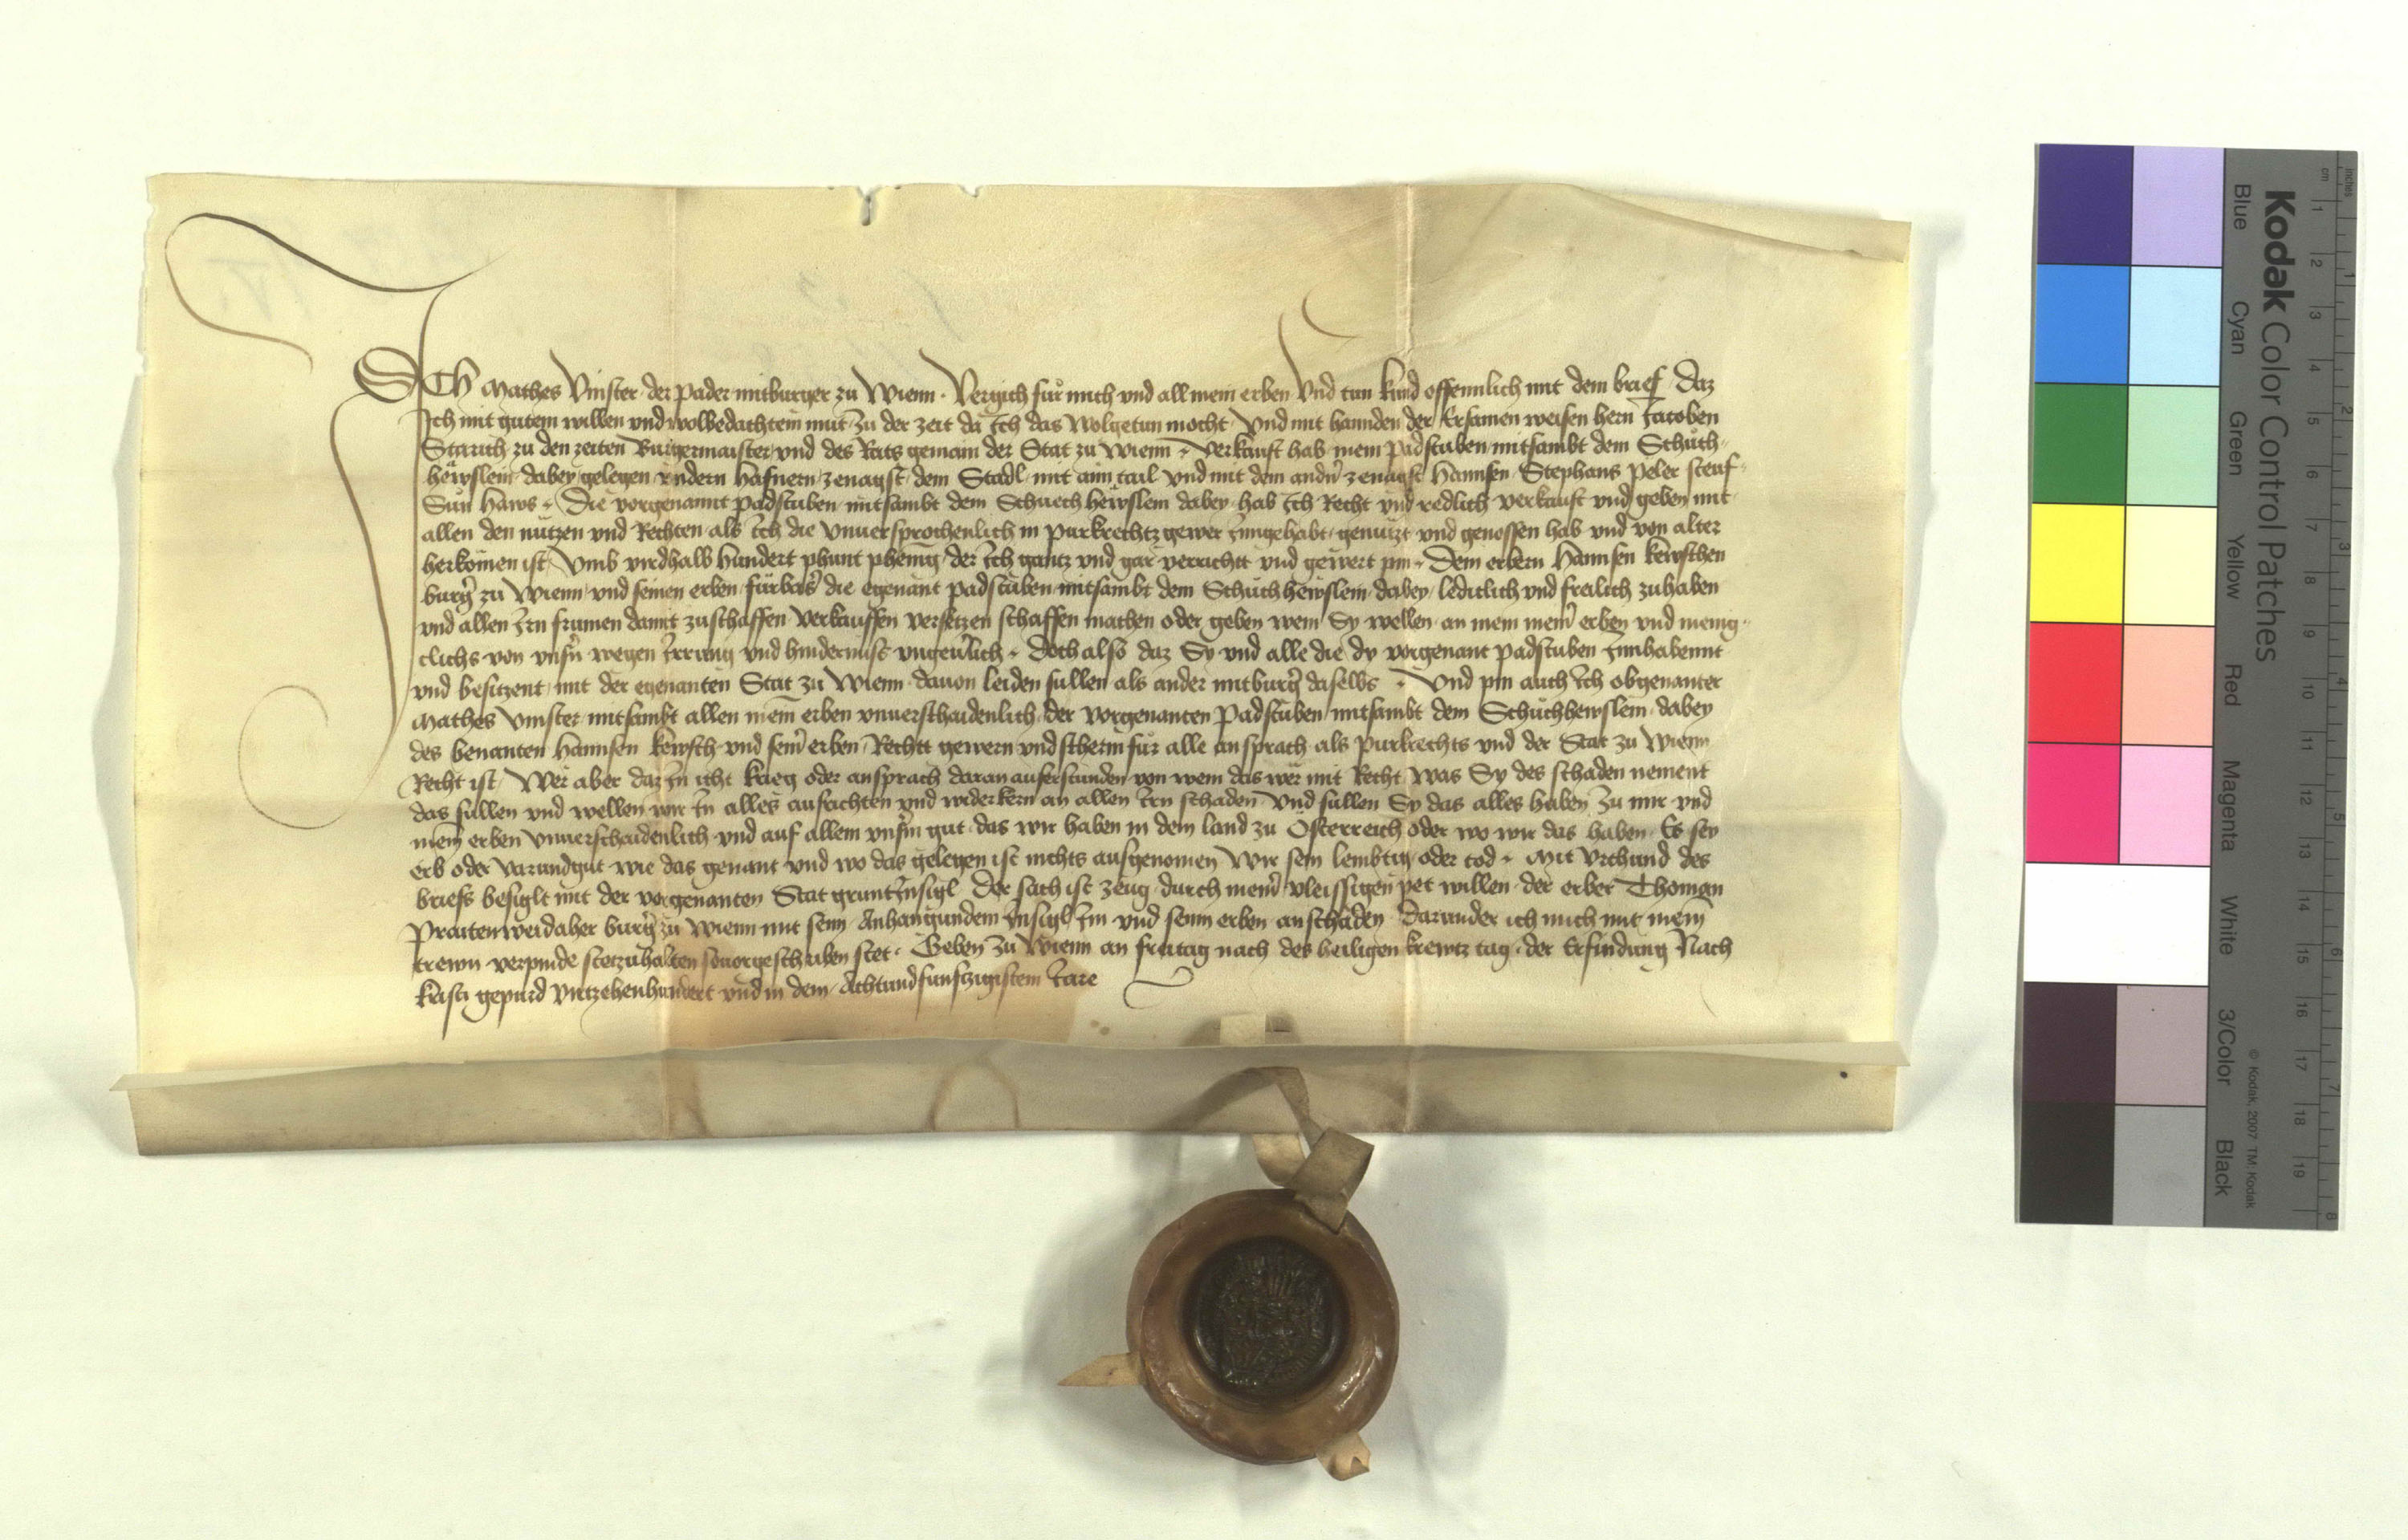 ICh Mathes Vinster der pader mitburger zu Wienn · Vergich für mich vnd all mein erben Vnd tun kund offennlich mit dem brief · Daz
Ich mit gutem willen vnd wolbedachtem mut zu der zeit da Ich das Wolgetun mocht Vnd mit hannden der Ersamen weisen hern Jacoben
Starich zu den zeiten Burgermaister vnd des Rats gemain der Stat zu Wienn · Verkauft hab mein padstuben mitsambt dem Schuch
hewslein dabey gelegen vndern hafnern zenagst dem Stadl mit aim tail vnd mit dem andn zenagst hannsen Stephans peler steuf
Sun haws · Die vorgenannt padstuben mitsambt dem Schuech hewslein dabey hab Ich Recht vnd redlich verkauft vnd geben mit
allen den nutzen vnd Rechten als Ich die vnuersprochenlich in purkrechtz gewer Inngehabt genutzt vnd genossen hab vnd von alter
herkomen ist Vmb virdhalb hundert phunt phenig der Ich gantz vnd gar verricht vnd gewert pin · Dem erbern Hannsen kewschen
burg zu Wienn vnd seinen erben fürbas die egenant padstuben mitsambt dem Schuch hewslein dabey ledicklich vnd freilich zuhaben
vnd allen Irn frumen damit zuschaffen verkauffen versetzen schaffen machen oder geben wem Sy wellen an mein meinr erben vnd menig
clichs von vnsn wegen Irrung vnd hindernuss vngeuerlich · Doch also daz Sy vnd alle die dy vorgenant padstuben Innhabennt
vnd besitzent mit der egenanten Stat zu Wienn dauon leiden sullen als ander mitburg daselbs · Vnd pin auch Ich obgenanter
Mathes Vinster mitsambt allen mein erben vnuerschaidenlich der vorgenanten padstuben mitsambt dem Schuchhewslein dabey
des benanten Hannsen kewsch vnd seinr erben Recht gewern vnd scherm für alle ansprach als purkrechts vnd der Stat zu Wienn
Recht ist Wer aber daz In icht krieg oder ansprach daran auferstunden von wem das wer mit Recht was Sy des schaden nement
das sullen vnd wellen wir In alles aufrichten vnd widerkern an allen Irn schaden Vnd sullen Sy das alles haben Zu mir vnd
mein erben vnuerschaidenlich vnd auf allem vnserm gut das wir haben in dem land zu Osterreich oder wo wir das haben Es sey
erb oder varundgut wie das genant vnd wo das gelegen ist nichts ausgenomen Wir sein lembtig oder tod · Mit Vrchund des
briefs besiglt mit der vorgenanten Stat gruntInsigl Der sach ist zeug durch meinr vleissigen pet willen der erber Thoman
praitenweidaher burg zu Wienn mit seim Anhangundem Insigl Im vnd seinn erben an schaden Darunder ich mich mit mein
trewn verpinde stetzuhalten seuorgeschriben stet · Geben Zu Wienn an freitag nach des heiligen krewtz tag der Erfindung Nach
kristi gepurd Virtzehenhundert vnd in dem Achtundfunfzigistem Iare
Kodak Color Control Patches
Blue Cyan Green Yellow Red Magenta White 3/Color Black
© Kodak, 2007 TM: Kodak
cm 1 2 3 4 5 6 7 8 9 10 11 12 13 14 15 16 17 18 19
inches 1 2 3 4 5 6 7 8